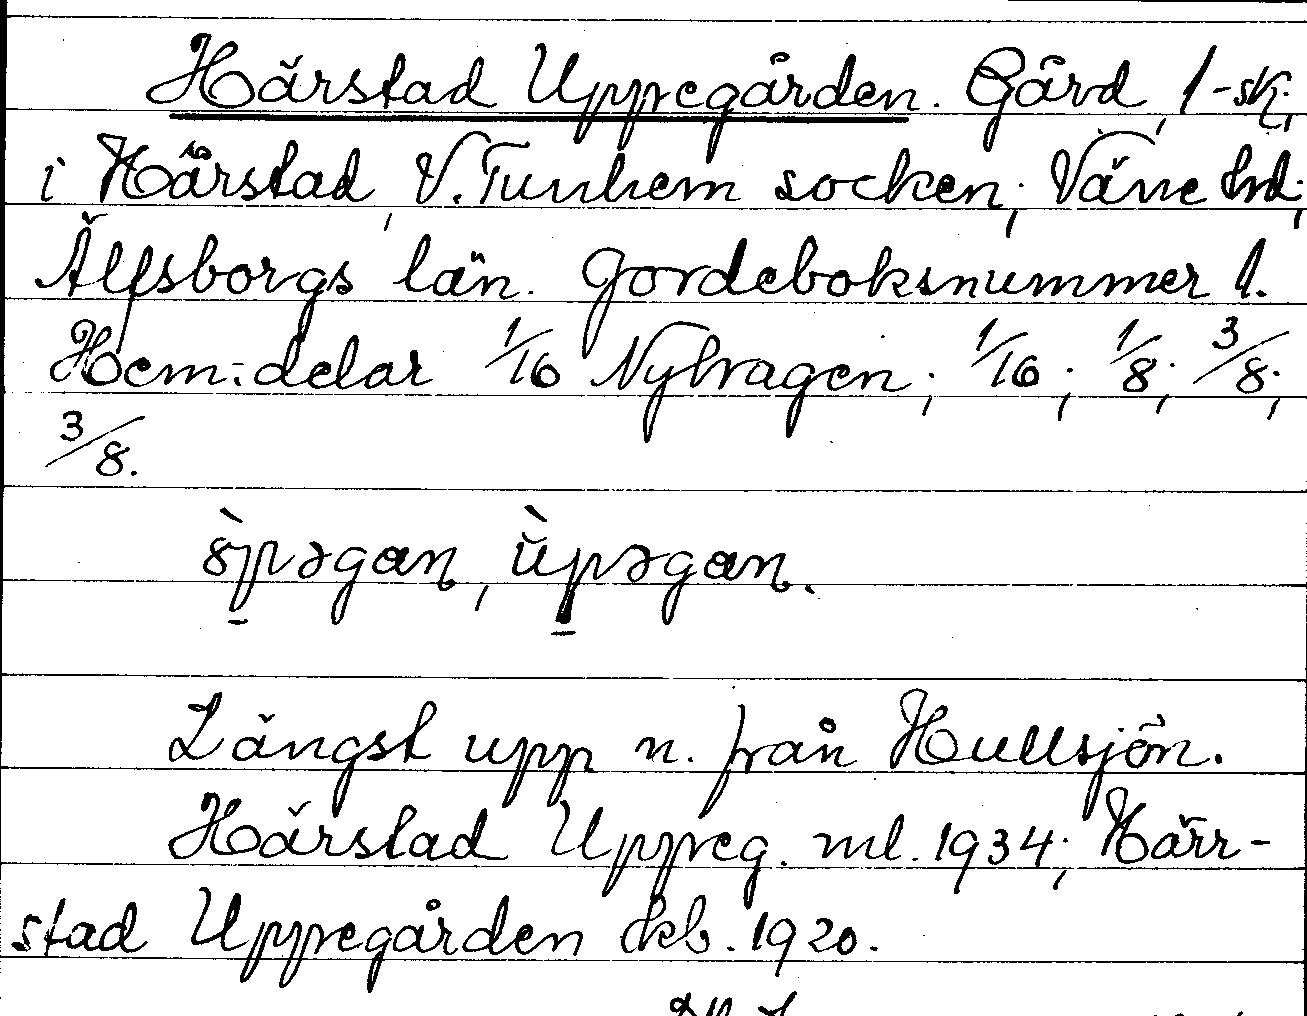 Härstad Uppegården. Gård, 1-sk;
i Härstad, V. Tunhem socken; Väne hd;
Älfsborgs län. Jordeboksnummer 1.
Hem:delar 1/16 Nyhagen; 1/16; 1/8; 3/8;
3/8.
ùpəgan.
Längst upp n. från Hullsjön.
Härstad Uppeg. ml. 1934; Härr-
stad Uppegården dkb. 1920.